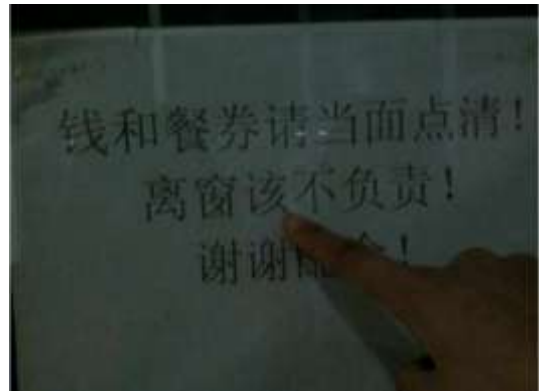 钱和餐券请当面点清!
离窗该不负责!
谢谢配合!